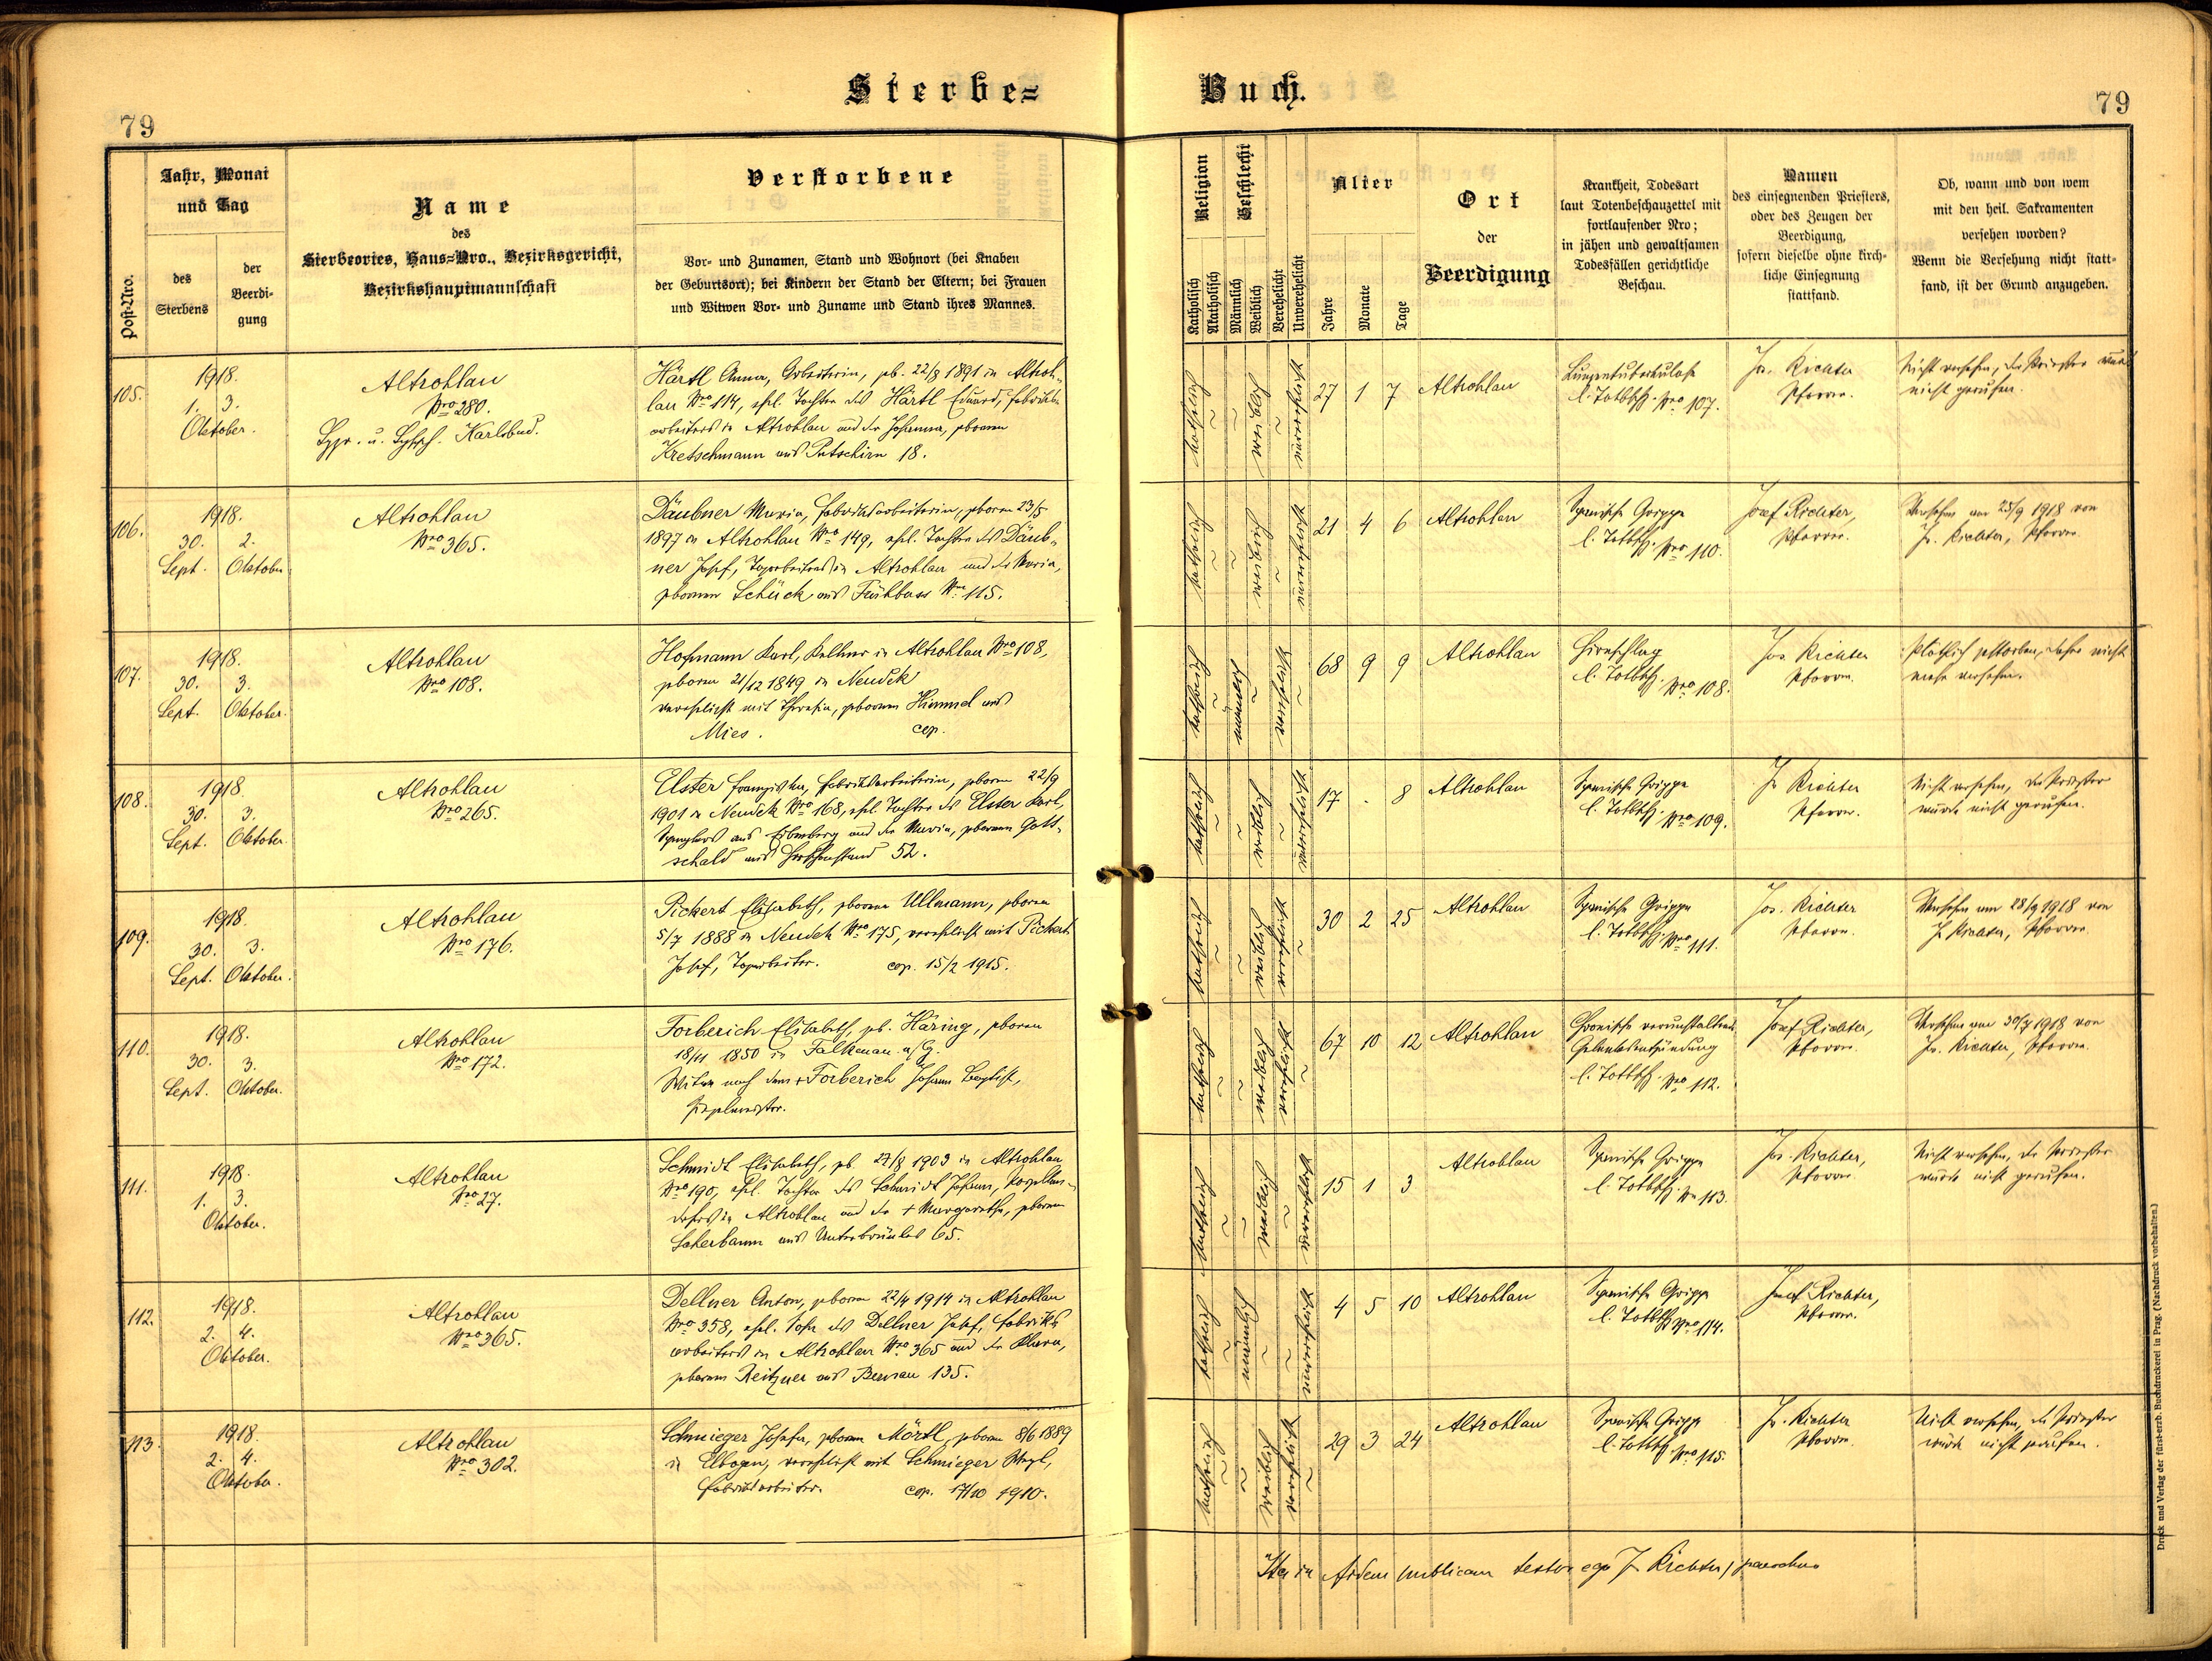 Sterbe=
Buch.
79
79
Post-Nro.
Jahr, Monat
und Tag
des
Sterbens
der
Beerdi-
gung
Name
des
Sterbeortes, Haus=Nro., Bezirksgericht,
Bezirkshauptmannschaft
Verstorbene
Vor- und Zunamen, Stand und Wohnort (bei Knaben
der Geburtsort); bei Kindern der Stand der Eltern; bei Frauen
und Witwen Vor- und Zuname und Stand ihres Mannes.
Religion
Katholisch
Akatholisch
Geschlecht
Männlich
Weiblich
Verehelicht
Unverehelicht
Alter
Jahre
Monate
Tage
Ort
der
Beerdigung
Krankheit, Todesart
laut Totenbeschauzettel mit
fortlaufender Nro;
in jähen und gewaltsamen
Todesfällen gerichtliche
Beschau.
Namen
des einsegnenden Priesters,
oder des Zeugen der
Beerdigung,
sofern dieselbe ohne kirch-
liche Einsegnung
stattfand.
Ob, wann und von wem
mit den heil. Sakramenten
versehen worden?
Wenn die Versehung nicht statt-
fand, ist der Grund anzugeben.
105.
1918.
1. 3.
Oktober.
Altrohlau
Nro 280.
Karlsbad.
Härtl Anna, Arbeiterin, geb. 22/8 1891 in Altroh-
lau Nro 114, ehel. Tochter des Härtl Eduard, Fabriks-
arbeiters in Altrohlau und der Johanna, geborenen
Kretschmann aus Putschirn 18.
katholisch
weiblich
unverehelicht
27 1 7
Altrohlau
Lungentuberkulose
l. Totbschz. Nro 107.
Jos. Richter
Pfarrer.
Nicht versehen, der Priester wurde
nicht gerufen.
106.
1918.
30. 2.
Sept. Oktober
Altrohlau
Nro 365.
Däubner Maria, Fabriksarbeiterin, geboren 23/5
1897 in Altrohlau Nro 149, ehel. Tochter des Däub-
ner Josef, Tagarbeiters in Altrohlau und der Maria,
geborenen Schück aus Frühbuss Nro 115.
katholisch
weiblich
unverehelicht
21 4 6
Altrohlau
Spanische Grippe
l. Totbschz. Nro 110.
Josef Richter,
Pfarrer.
Versehen am 25/9 1918 von
Jos. Richter, Pfarrer
107.
1918.
30. 3.
Sept. Oktober.
Altrohlau
Nro 108.
Hofmann Karl, Kellner in Altrohlau Nro 108,
geboren 21/12 1849 in Neudek
verehelicht mit Theresia, geborenen Himmel aus
Mies. cop.
katholisch
männlich
verehelicht
68 9 9
Altrohlau
Hirnschlag
l. Totbschz. Nro 108.
Jos. Richter
Pfarrer.
Plötzlich gestorben, daher nicht
mehr versehen.
108.
1918.
30. 3.
Sept. Oktober
Altrohlau
Nro 265.
Elster Franziska, Fabriksarbeiterin, geboren 22/9
1901 in Neudek Nro 168, ehel. Tochter des Elster Karl,
Spenglers aus und der Maria, geborenen Gott-
schald aus Hirschenstand 52.
katholisch
weiblich
unverehelicht
17 . 8
Altrohlau
Spanische Grippe
l. Totbschz. Nro 109.
Jos. Richter
Pfarrer.
Nicht versehen, der Priester
wurde nicht gerufen.
109.
1918.
30. 3.
Sept. Oktober.
Altrohlau
Nro 176.
Pickert Elisabeth, geborene Ullmann, geboren
5/7 1888 in Neudek Nro 175, verehelicht mit Pickert
Josef, Tagarbeiter. cop. 15/2 1915.
katholisch
weiblich
verehelicht
30 2 25
Altrohlau
Spanische Grippe
l. Totbschz. Nro 111.
Jos. Richter
Pfarrer.
Versehen am 28/9 1918 von
J. Richter, Pfarrer.
110.
1918.
30. 3.
Sept. Oktober.
Altrohlau
Nro 172.
Forberich Elisabeth, geb. Häring, geboren
18/11 1850 in Falkenau a/Eg.
Witwe nach dem + Forberich Johann Baptist,
katholisch
weiblich
verehelicht
67 10 12
Altrohlau
Chronische
Gelenksentzündung
l. Totbschz. Nro 112.
Josef Richter,
Pfarrer.
Versehen am 30/9 1918 von
Jos. Richter, Pfarrer.
111.
1918.
1. 3.
Oktober.
Altrohlau
Nro 27.
Schmidt Elisabeth, geb. 27/8 1903 in Altrohlau
Nro 190, ehel. Tochter des Schmidt Johann, Porzellan-
drehers in Altrohlau und der + Margaretha, geborenen
Lederbaum aus 65.
katholisch
weiblich
unverehelicht
15 1 3
Altrohlau
Spanische Grippe
l. Totbschz. Nro 113.
Jos. Richter,
Pfarrer.
Nicht versehen, der Priester
wurde nicht gerufen.
112.
1918.
2. 4.
Oktober.
Altrohlau
Nro 365.
Dellner Anton, geboren 22/4 1914 in Altrohlau
Nro 358, ehel. Sohn des Dellner Josef, Fabriks-
arbeiters in Altrohlau Nro 365 und der Klara,
geborenen Reitzner aus Bernau 135.
katholisch
männlich
unverehelicht
4 5 10
Altrohlau
Spanische Grippe
l. Totbschz. Nro 114.
Josef Richter,
Pfarrer.
113.
1918.
2. 4.
Oktober.
Altrohlau
Nro 302.
Schmieger Josefa, geborene Mörtl, geboren 8/6 1889
in Elbogen, verehelicht mit Schmieger
Fabriksarbeiter. cop. 17/10 1910.
katholisch
weiblich
verehelicht
29 3 24
Altrohlau
Spanische Grippe
l. Totbschz. Nro 115.
Jos. Richter
Pfarrer.
Nicht versehen, der Priester
wurde nicht gerufen.
Ita in fidem publicam testor ego J. Richter, parochus
Druck und Verlag der fürst-erzb. Buchdruckerei in Prag. (Nachdruck vorbehalten.)